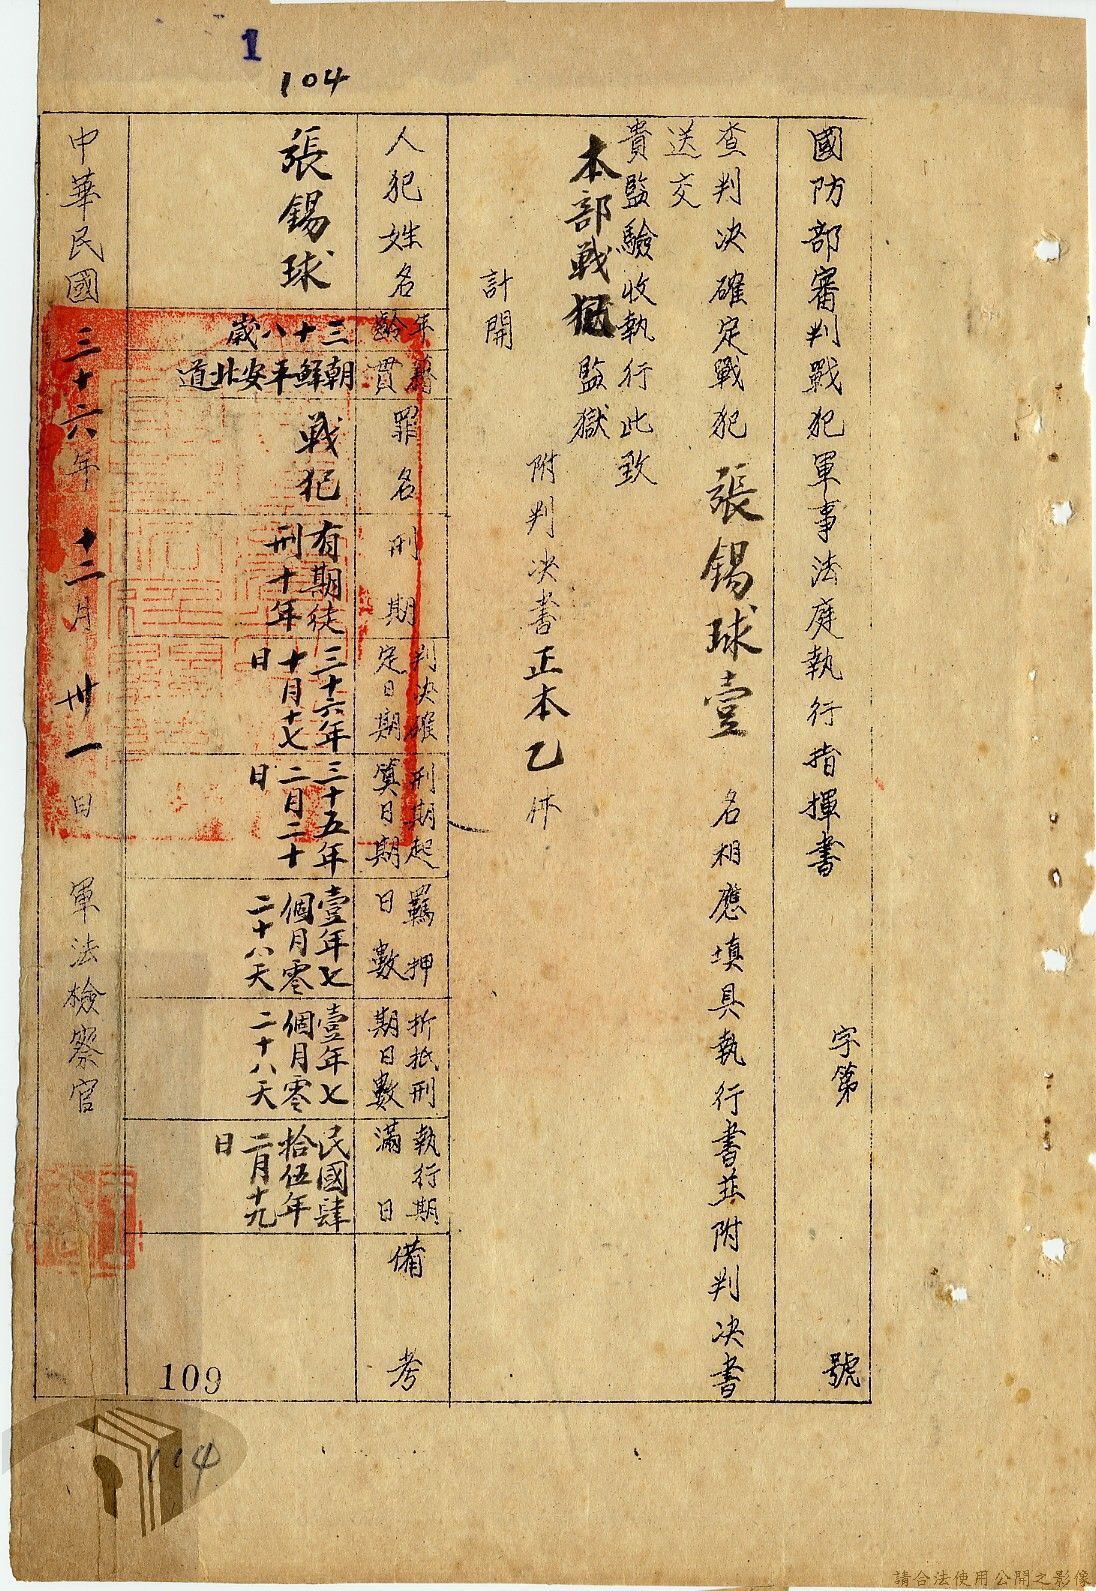 1
104
國防部審判戰犯軍事法庭執行指揮書
字第 號
查判決確定戰犯張錫球壹名相應填具執行書並附判決書
送交
貴監驗收執行此致
本部戦獄監獄
附判決書正本乙件
計開
人犯姓名
年齡
籍貫
罪名
刑期
判決確定日期
刑期起算日期
羈押日數
折抵刑期日數
執行期滿日
備考
張錫球
三十八歲
朝鮮平安北道
戦犯
有期徒刑十年
三十六年十月十七日
三十五年二月二十日
壹年七個月零二十八天
壹年七個月零二十八天
民國肆拾伍年二月十九日
中華民國三十六年十二月卅一日 軍法檢察官
109
請合法使用公開之影像